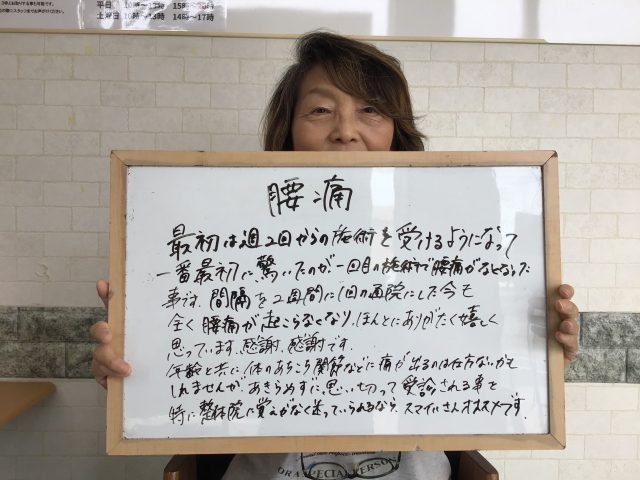 平日
土曜日 10時~13時 14時~17時
腰痛
最初は週2回からの施術を受けるようになって
一番最初に驚いたのが一回目の施術で腰痛がなくなった
事です。間隔を2週間に1回の通院にした今も
全く腰痛が起こらなくなり、ほんとにありがたく嬉しく
思っています。感謝、感謝です。
年齢と共に体のあちこち関節などに痛が出るのは仕方ないかも
しれませんがあきらめずに思い切って受診される事を
特に整体院に覚えがなく迷っていられるなら、スマイルさんオススメです。
ORA SPECIAL PERSON